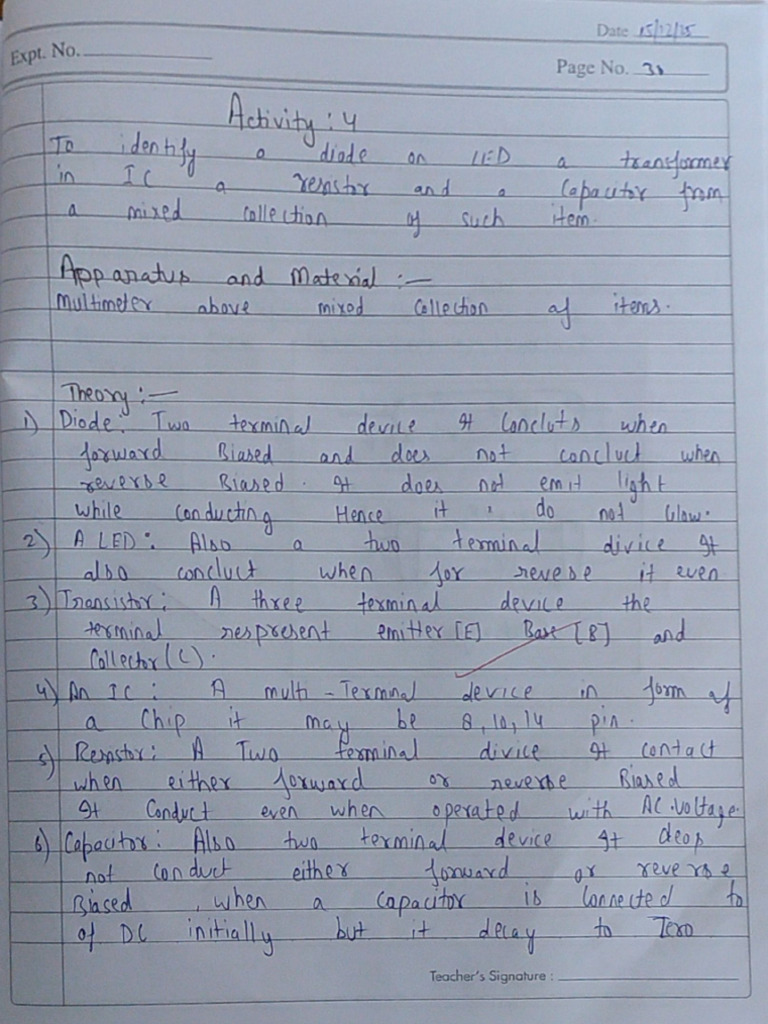 Date 15/12/15
Expt. No.
Page No. 30
Activity : 4
To identify a diode an LED a transformer
in IC a resistor and a Capacitor from
a mixed collection of such item.
Apparatus and Material :—
Multimeter above mixed Collection of items.
Theory :—
1) Diode: Two terminal device It Concluts when
forward Biased and does not concluct when
reverse Biased. It does not emit light
while conducting Hence it do not Glow.
2) A LED: Also a two terminal divice It
also concluct when for reverse it even
3) Transistor: A three terminal device the
terminal respresent emitter [E] Base [B] and
Collector (C).
4) An IC : A multi-Terminal device in form of
a Chip it may be 8, 10, 14 pin.
5) Resistor: A Two terminal divice It contact
when either forward or reverse Biased
It Conduct even when operated with AC.voltage.
6) Capacitor: Also two terminal device It deos
not conduct either forward or reverse
Biased , when a capacitor is Connected to
of DC initially but it decay to Zero
Teacher's Signature :